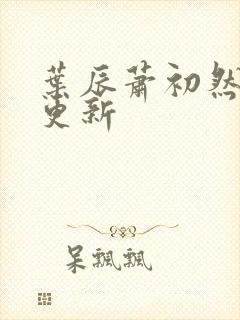 葉辰蕭初然
更新
呆飄飄